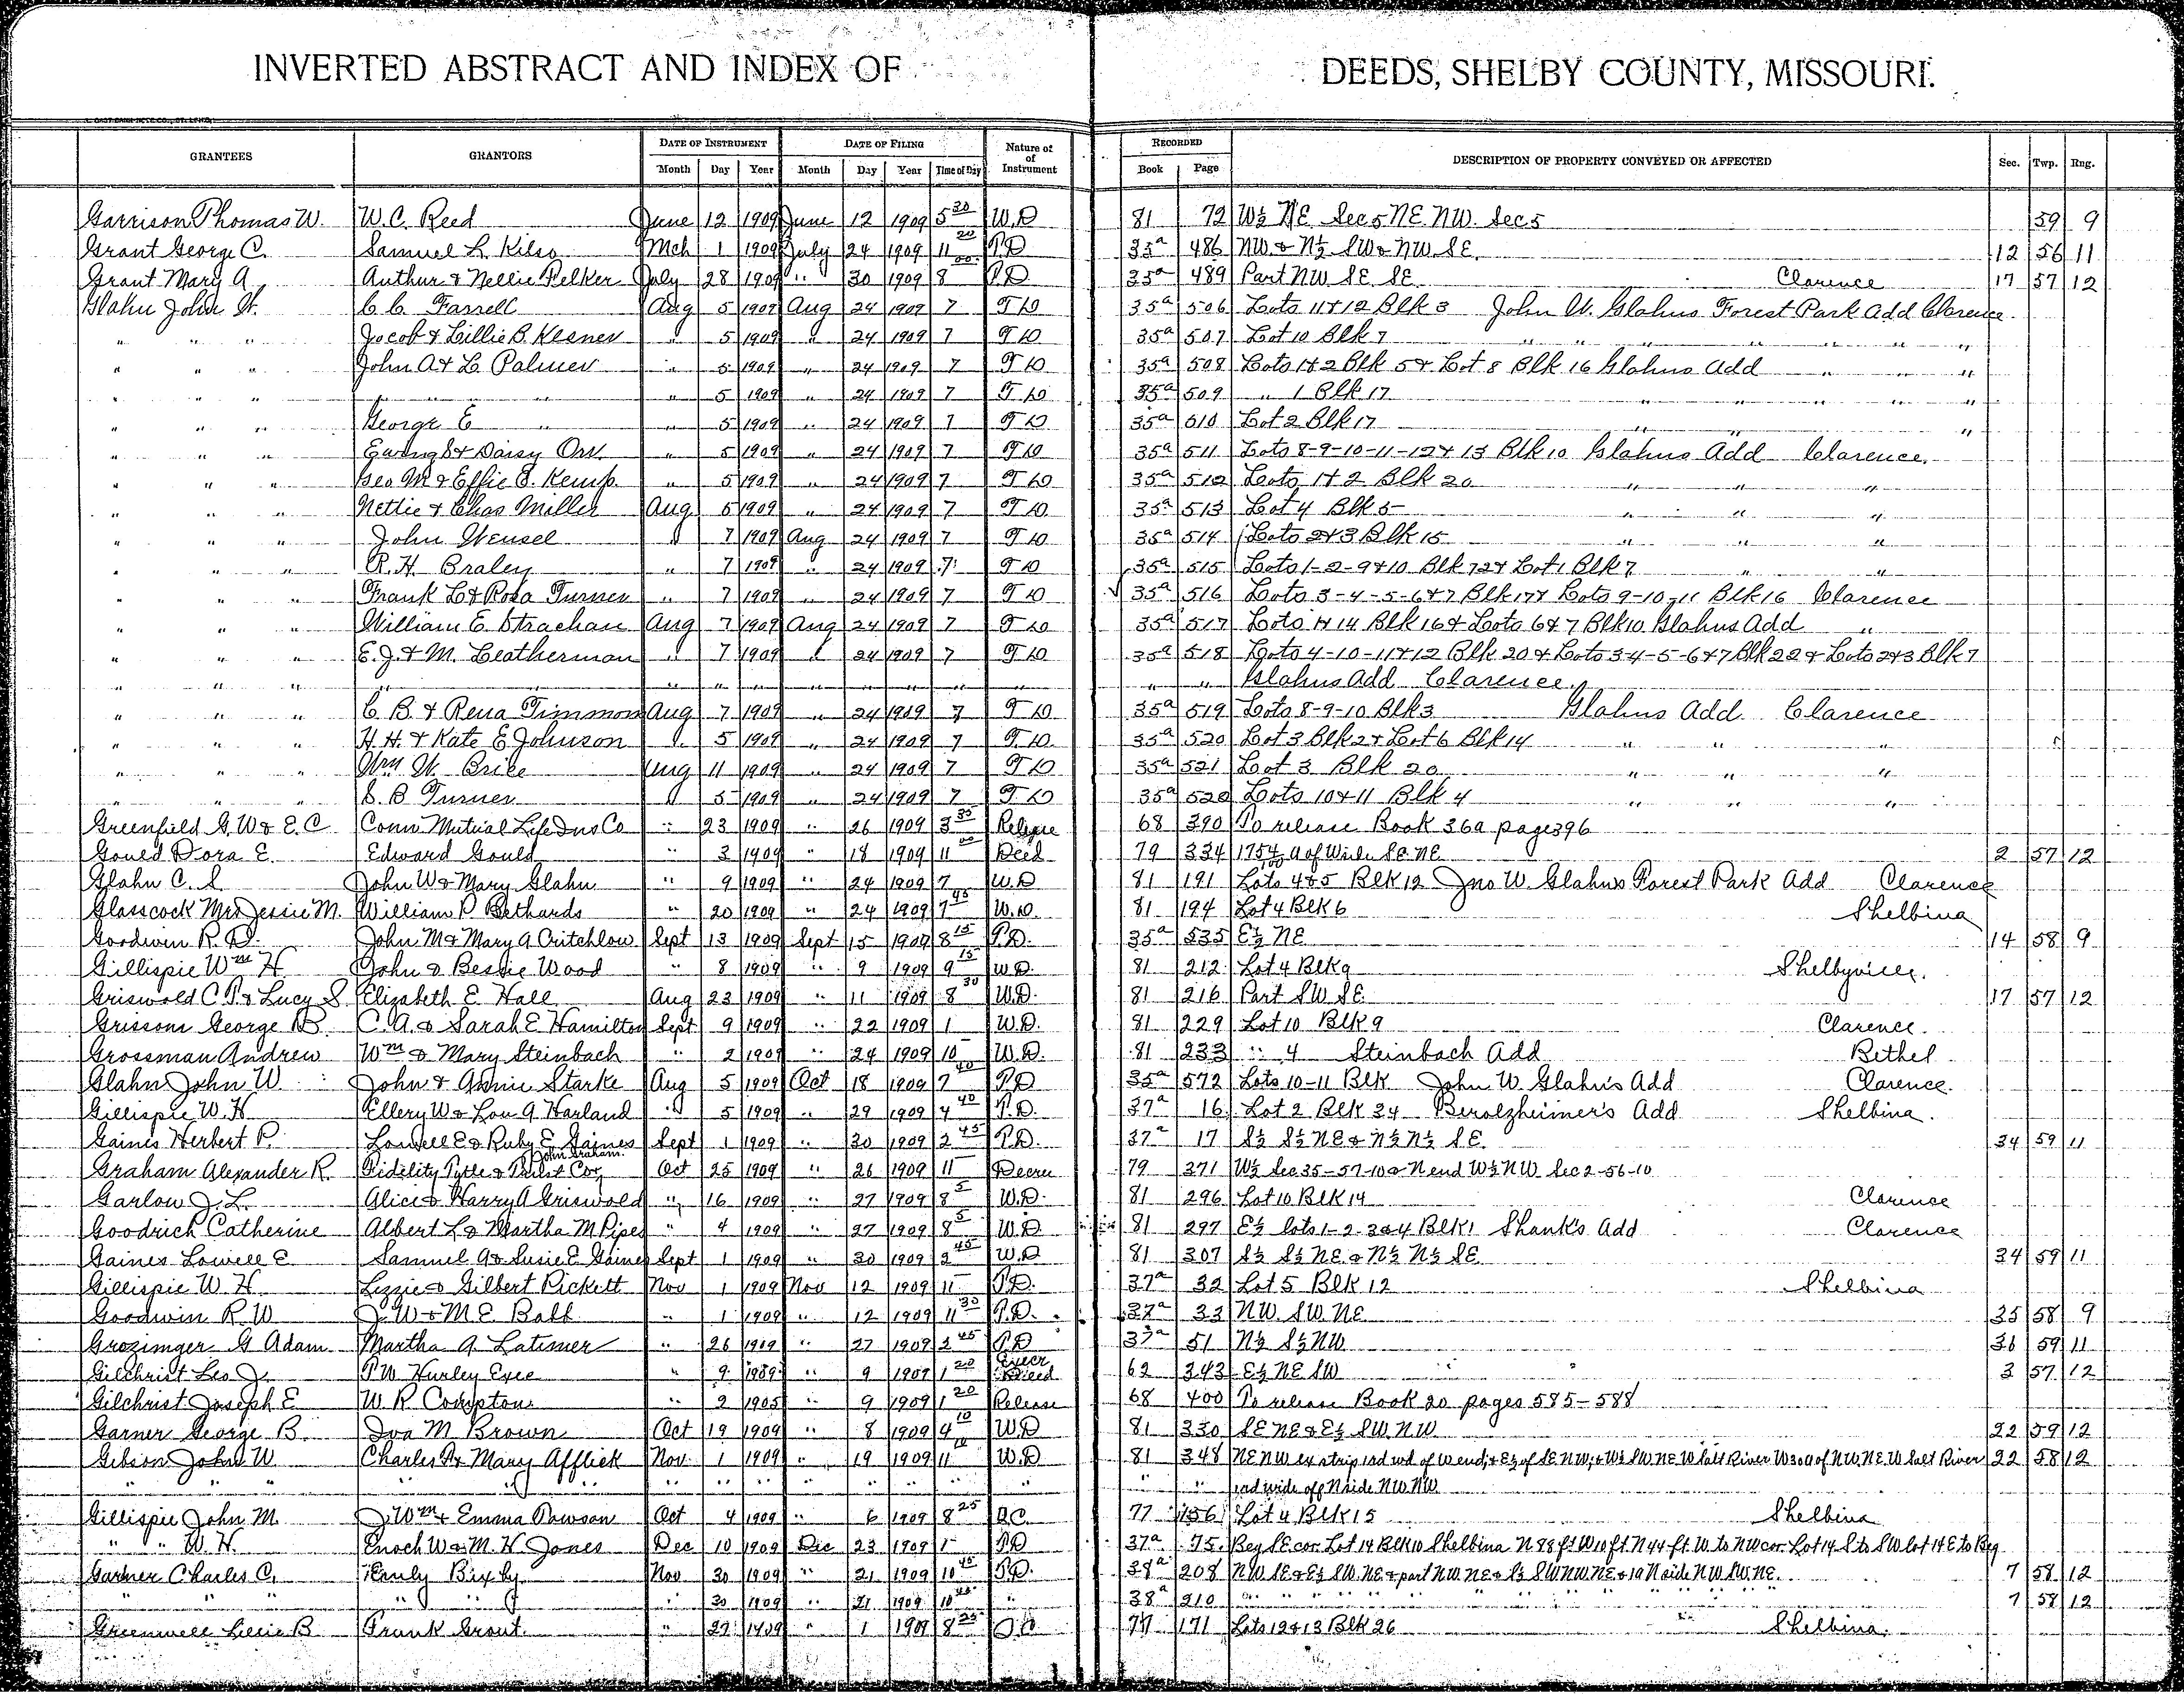 INVERTED ABSTRACT AND INDEX OF DEEDS, SHELBY COUNTY, MISSOURI.
GRANTEES GRANTORS DATE OF INSTRUMENT DATE OF FILING Nature of Instrument RECORDED DESCRIPTION OF PROPERTY CONVEYED OR AFFECTED Sec. Twp. Rng.
Month Day Year Month Day Year Time of Day Book Page
Garrison Thomas W. W.C. Reed June 12 1909 June 12 1909 5 30 W.D 81 72 W½ NE Sec 5 NE NW. Sec 5 59 9
Grant George C. Samuel L. Kilso Mch 1 1909 July 24 1909 11 20 T.D 35a 486 NW. & N½ SW & NW. SE. 12 56 11
Grant Mary A Authur & Nellie Pelker July 28 1909 " 30 1909 8 00 T.D 35a 489 Part NW SE SE Clarence 17 57 12
Glahn John W. C.C. Farrell Aug 5 1909 Aug 24 1909 7 T D 35a 506 Lots 11 & 12 Blk 3 John W. Glahns Forest Park Add Clarence
" " " Jacob & Lillie B. Kesner " 5 1909 " 24 1909 7 T D 35a 507 Lot 10 Blk 7 " " " " "
" " " John A & L Palmer " 5 1909 " 24 1909 7 T D 35a 508 Lots 1 & 2 Blk 5 & Lot 8 Blk 16 Glahns Add " " "
" " " " " " 5 1909 " 24 1909 7 T.D 35a 509 " 1 Blk 17 " " " "
" " " George E " " 5 1909 " 24 1909 7 T D 35a 510 Lot 2 Blk 17 " "
" " " Ewing S & Daisy Orr. " 5 1909 " 24 1909 7 T D 35a 511 Lots 8-9-10-11-12 & 13 Blk 10 Glahns Add Clarence.
" " " Geo M & Effie S. Kemp. " 5 1909 " 24 1909 7 T D 35a 512 Lots 1 & 2 Blk 20 " " "
" " " Nettie & Chas Miller Aug 5 1909 " 24 1909 7 T D 35a 513 Lot 4 Blk 5 " " "
" " " John Wensel " 7 1909 Aug 24 1909 7 T D 35a 514 Lots 2 & 3 Blk 15 " " "
" " " R.H. Braley " 7 1909 " 24 1909 7 T D 35a 515 Lots 1-2-9 & 10 Blk 12 & Lot 1 Blk 7 " "
" " " Frank L & Rosa Turner " 7 1909 " 24 1909 7 T D 35a 516 Lots 3-4-5-6 & 7 Blk 17 & Lots 9-10-11 Blk 16 Clarence
" " William E. Strachan Aug 7 1909 Aug 24 1909 7 T D 35a 517 Lots 1 & 14 Blk 16 & Lots 6 & 7 Blk 10 Glahns Add "
" " " E.J. & M. Leatherman " 7 1909 " 24 1909 7 T D 35a 518 Lots 4-10-11 & 12 Blk 20 & Lots 3-4-5-6 & 7 Blk 22 & Lots 2 & 3 Blk 7
" " " " " " " " " " " " " " Glahns Add Clarence.
" " " C B. & Rena Timmons Aug 7 1909 " 24 1909 7 T D 35a 519 Lots 8-9-10 Blk 3 Glahns Add. Clarence
" " " H.H. & Kate E Johnson " 5 1909 " 24 1909 7 T.D. 35a 520 Lot 3 Blk 2 & Lot 6 Blk 14 " " "
" " " Wm W. Brice Aug 11 1909 " 24 1909 7 T D 35a 521 Lot 3 Blk 20 " " "
" " " S. B Turner " 5 1909 " 24 1909 7 T.D 35a 522 Lots 10 & 11 Blk 4 " " "
Greenfield G.W & E.C Conn Mutual Life Ins Co " 23 1909 " 26 1909 3 35 Release 68 390 To release Book 36a page 396
Gould Dora E. Edward Gould " 3 1909 " 18 1909 11 00 Deed 79 334 SE NE 2 57 12
Glahn C. S. John W & Mary Glahn " 9 1909 " 24 1909 7 W.D 81 191 Lots 4 & 5 Blk 12 Jno W. Glahns Forest Park Add Clarence
Glasscock Mrs Jessie M. William P Bethards " 20 1909 " 24 1909 7 45 W.D. 81 194 Lot 4 Blk 6 Shelbina
Goodwin R. D. John M & Mary A Critchlow Sept 13 1909 Sept 15 1909 8 15 T.D. 35a 535 E½ NE 14 58 9
Gillispie Wm H John & Bessie Wood " 8 1909 " 9 1909 9 15 W.D. 81 212 Lot 4 Blk 9 Shelbyville.
Griswold C.P. & Lucy S Elizabeth E Hall Aug 23 1909 " 11 1909 8 30 W.D. 81 216 Part SW SE 17 57 12
Grissom George B. C.A. & Sarah E Hamilton Sept 9 1909 " 22 1909 1 W.D. 81 229 Lot 10 Blk 9 Clarence.
Grossman Andrew Wm & Mary Steinbach " 2 1909 " 24 1909 10 W.D. 81 233 " 4 Steinbach Add Bethel
Glahn John W. John & Annie Starke Aug 5 1909 Oct 18 1909 7 40 T.D 35a 572 Lots 10-11 Blk John W. Glahn's Add Clarence.
Gillispie W.H. Ellery W & Lou A Harland " 5 1909 " 29 1909 4 40 T.D. 37a 16 Lot 2 Blk 34 Berolzheimer's Add Shelbina.
Gaines Herbert P. Lowell E & Ruby E Gaines Sept 1 1909 " 30 1909 2 45 T.D. 37a 17 S½ S½ NE & N½ N½ SE. 34 59 11
Graham Alexander R. Fidelity Title & Trust Co, John Graham. Oct 25 1909 " 26 1909 11 Decree 79 371 W½ Sec 35-57-10 & N end W½ NW Sec 2-56-10
Garlow J. L. Alice & Harry A Griswold " 16 1909 " 27 1909 8 5 W.D. 81 296 Lot 10 Blk 14 Clarence
Goodrich Catherine Albert L & Martha M Pipes " 4 1909 " 27 1909 8 5 W.D 81 297 E½ lots 1-2-3 & 4 Blk 1 Shank's Add Clarence
Gaines Lowell E Samuel A & Susie E Gaines Sept 1 1909 " 30 1909 2 45 W.D 81 307 S½ S½ NE. & N½ N½ SE 34 59 11
Gillispie W. H Lizzie & Gilbert Pickett Nov 1 1909 Nov 12 1909 11 T.D. 37a 32 Lot 5 Blk 12 Shelbina
Goodwin R W J.W & M E Ball " 1 1909 " 12 1909 11 30 T.D. 37a 33 NW. SW. NE 35 58 9
Grozinger G Adam Martha A Latimer " 26 1909 " 27 1909 2 45 T.D 37a 51 N½ S½ NW 36 59 11
Gilchrist Leo J. P.W Hurley Exec " 9 1909 " 9 1909 1 20 Execr Deed 62 343 E½ NE SW 3 57 12
Gilchrist Joseph E W. R Compton " 2 1905 " 9 1909 1 20 Release 68 400 To release Book 20 pages 585-588
Garner George B. Iva M Brown Oct 19 1909 " 8 1909 4 10 W.D 81 330 SE NE & E½ SW. NW 22 59 12
Gibson John W Charles & Mary Afflick Nov. 1 1909 " 19 1909 11 10 W.D 81 348 NE NW ex strip 1 rd wd of W end; & E½ of SE NW; & W½ SW. NE W Salt River W 30 a of NW. NE. W Salt River 22 58 12
" " " " " " " " " " " " rd wide off N side NW. NW.
Gillispie John M. J. Wm & Emma Dawson Oct 4 1909 " 6 1909 8 25 Q.C. 77 156 Lot 4 Blk 15 Shelbina
" " W. H. Enoch W & M. H Jones Dec 10 1909 Dec 23 1909 1 T.D 37a 75 Beg SE cor. Lot 14 Blk 10 Shelbina N 98 ft W 10 ft N 44 ft W. to NW cor. Lot 14 S to SW lot 14 E to Beg
Garner Charles C. Emly Bixby Nov 30 1909 " 21 1909 10 45 T.D. 38a 208 NW SE & E½ SW. NE & part NW. NE & S½ SW NW. NE & 1 a N side NW SW. NE. 7 58 12
" " " " " 30 1909 " 21 1909 10 45 " 38a 210 " " " " " " " " 7 58 12
Greenwell Lizzie B Frank Grout. " 27 1909 " 1 1909 8 25 Q C 77 171 Lots 12 & 13 Blk 26 Shelbina.